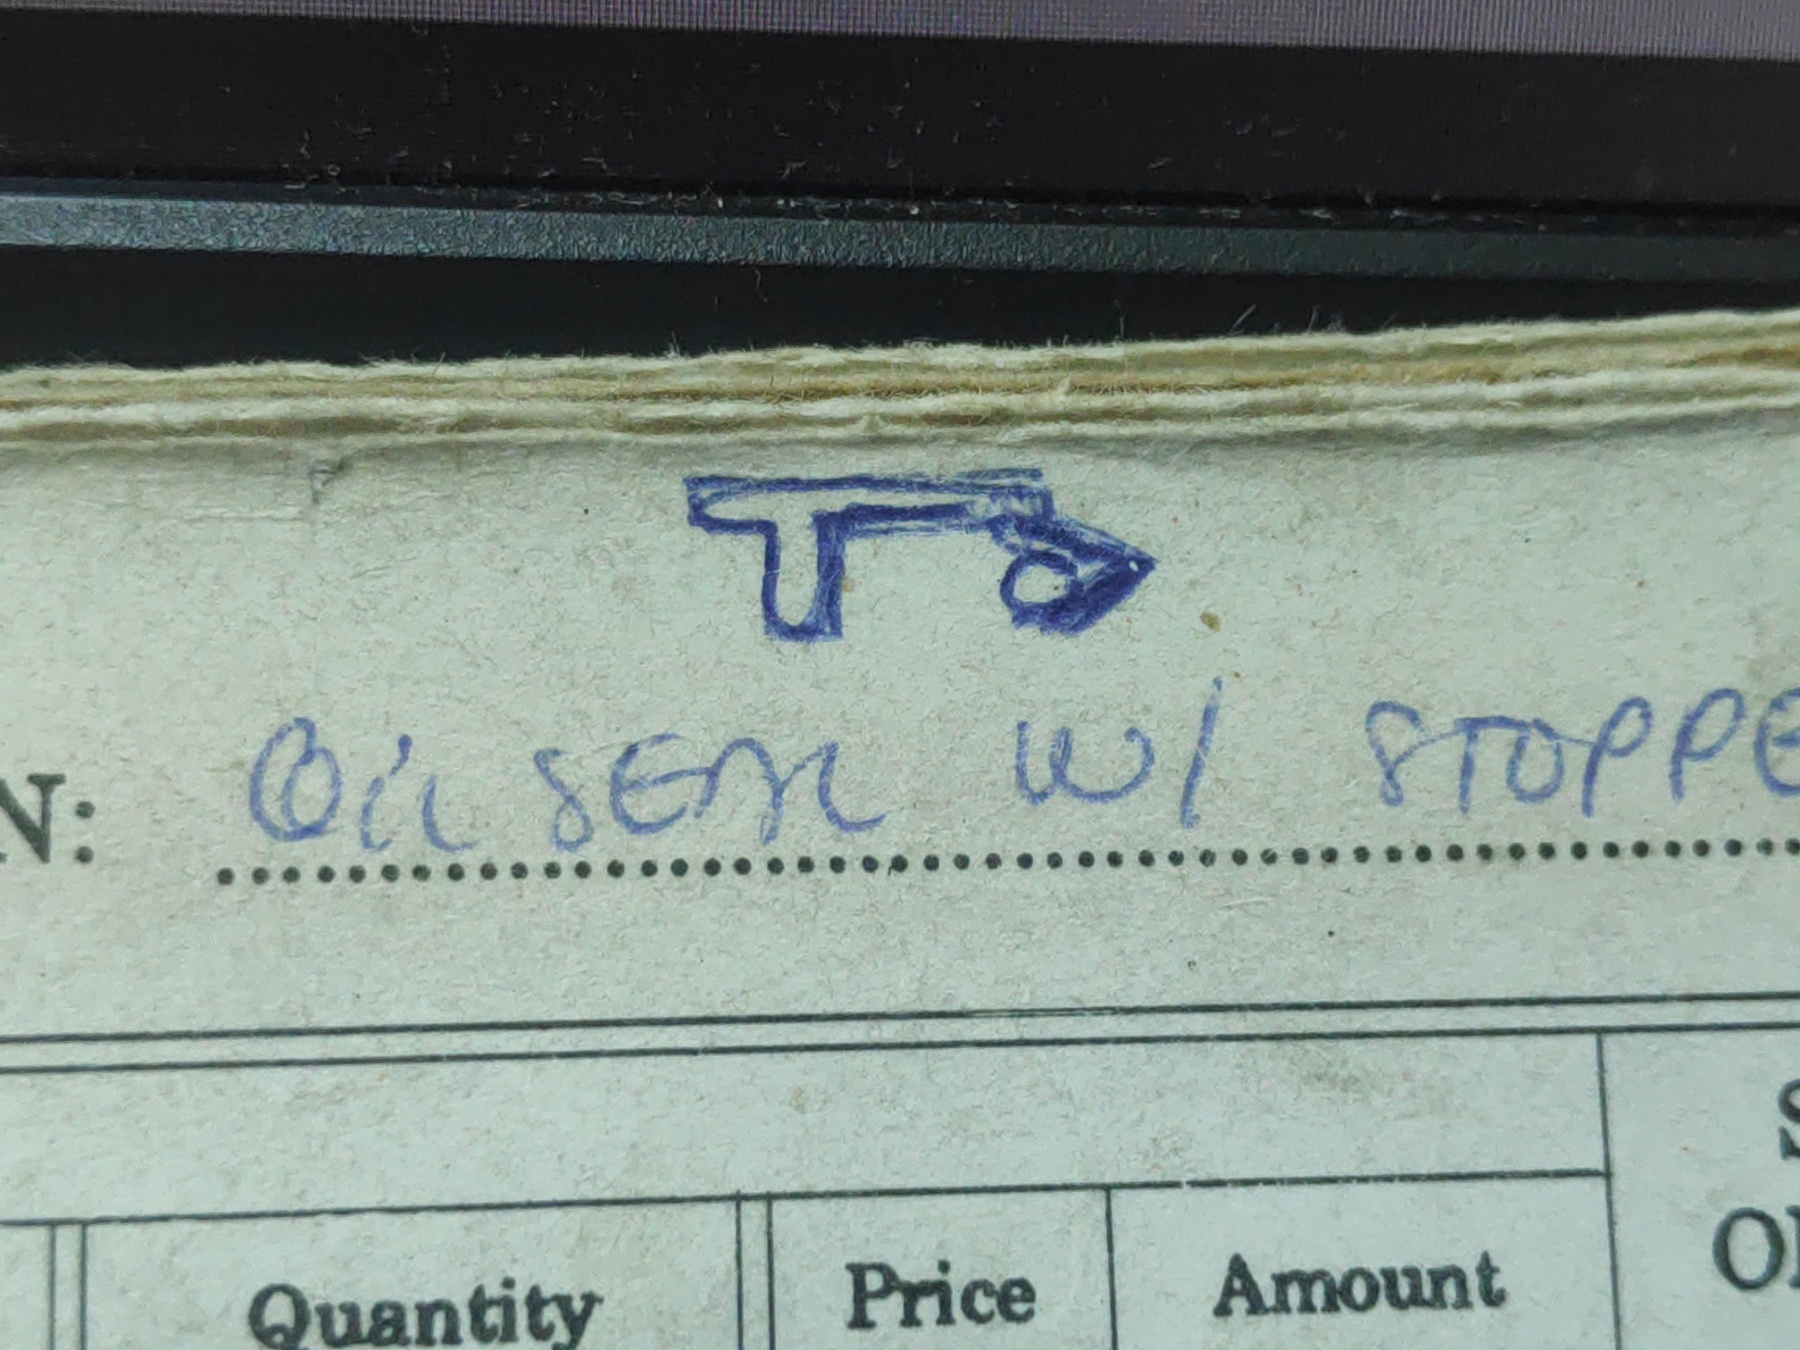 N: OIL SEAL W/ STOPPE
S
Quantity Price Amount